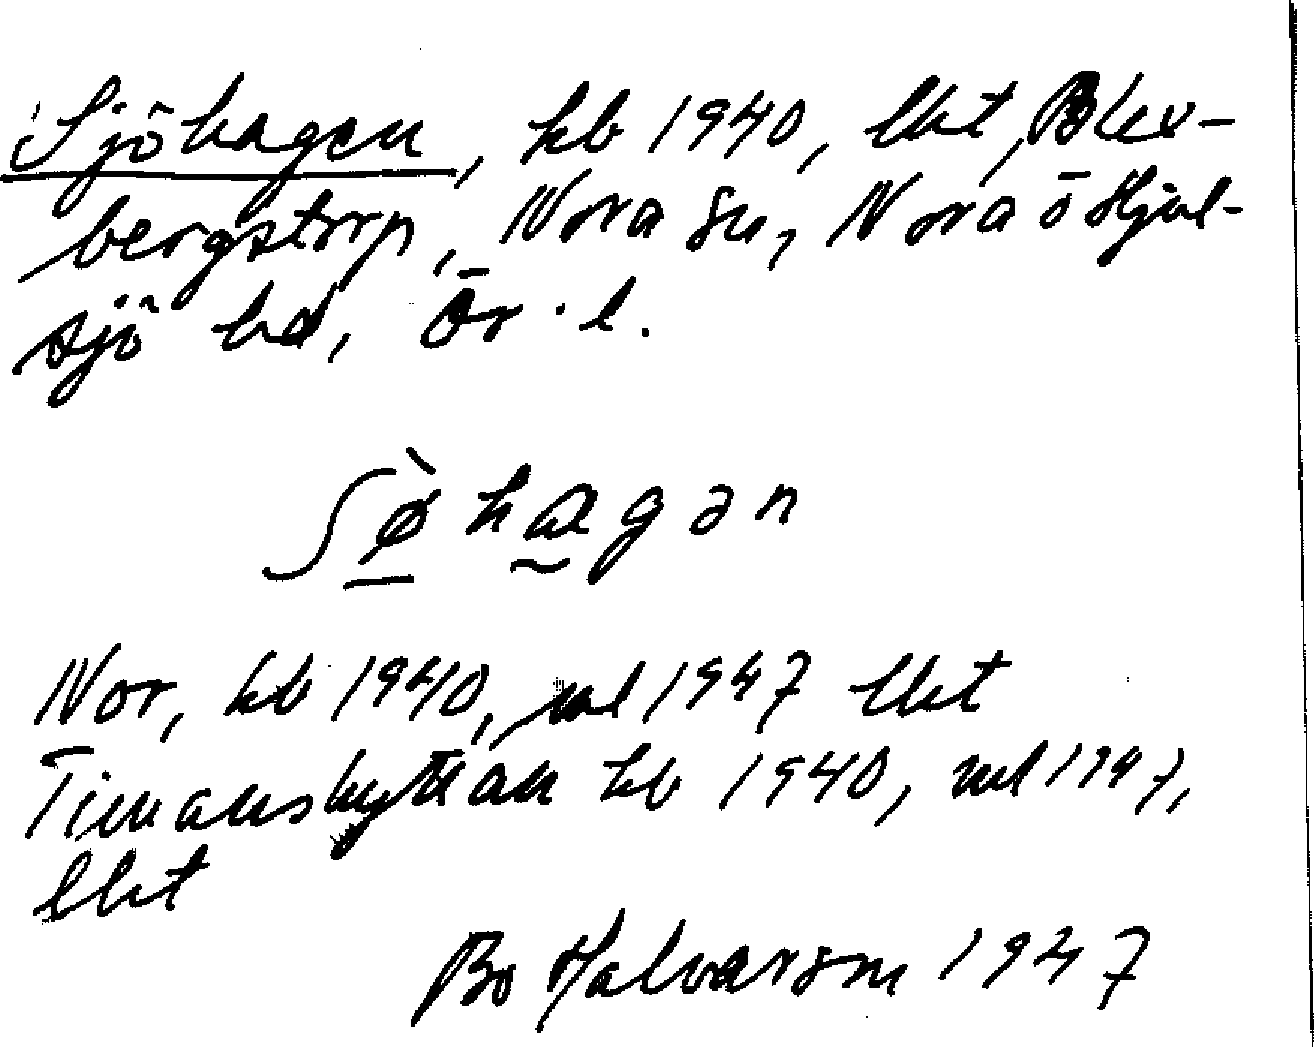 Sjöhagen, kb 1940, lht, Blex-
bergstorp, Nora sn, Nora ō Hjul-
sjö hd, Ör. l.
ʃø̀hagən
Nor, kb 1940, ml 1947 lht
Timanshyttan kb 1940, ml 1947,
lht
Bo Halvarson 1947